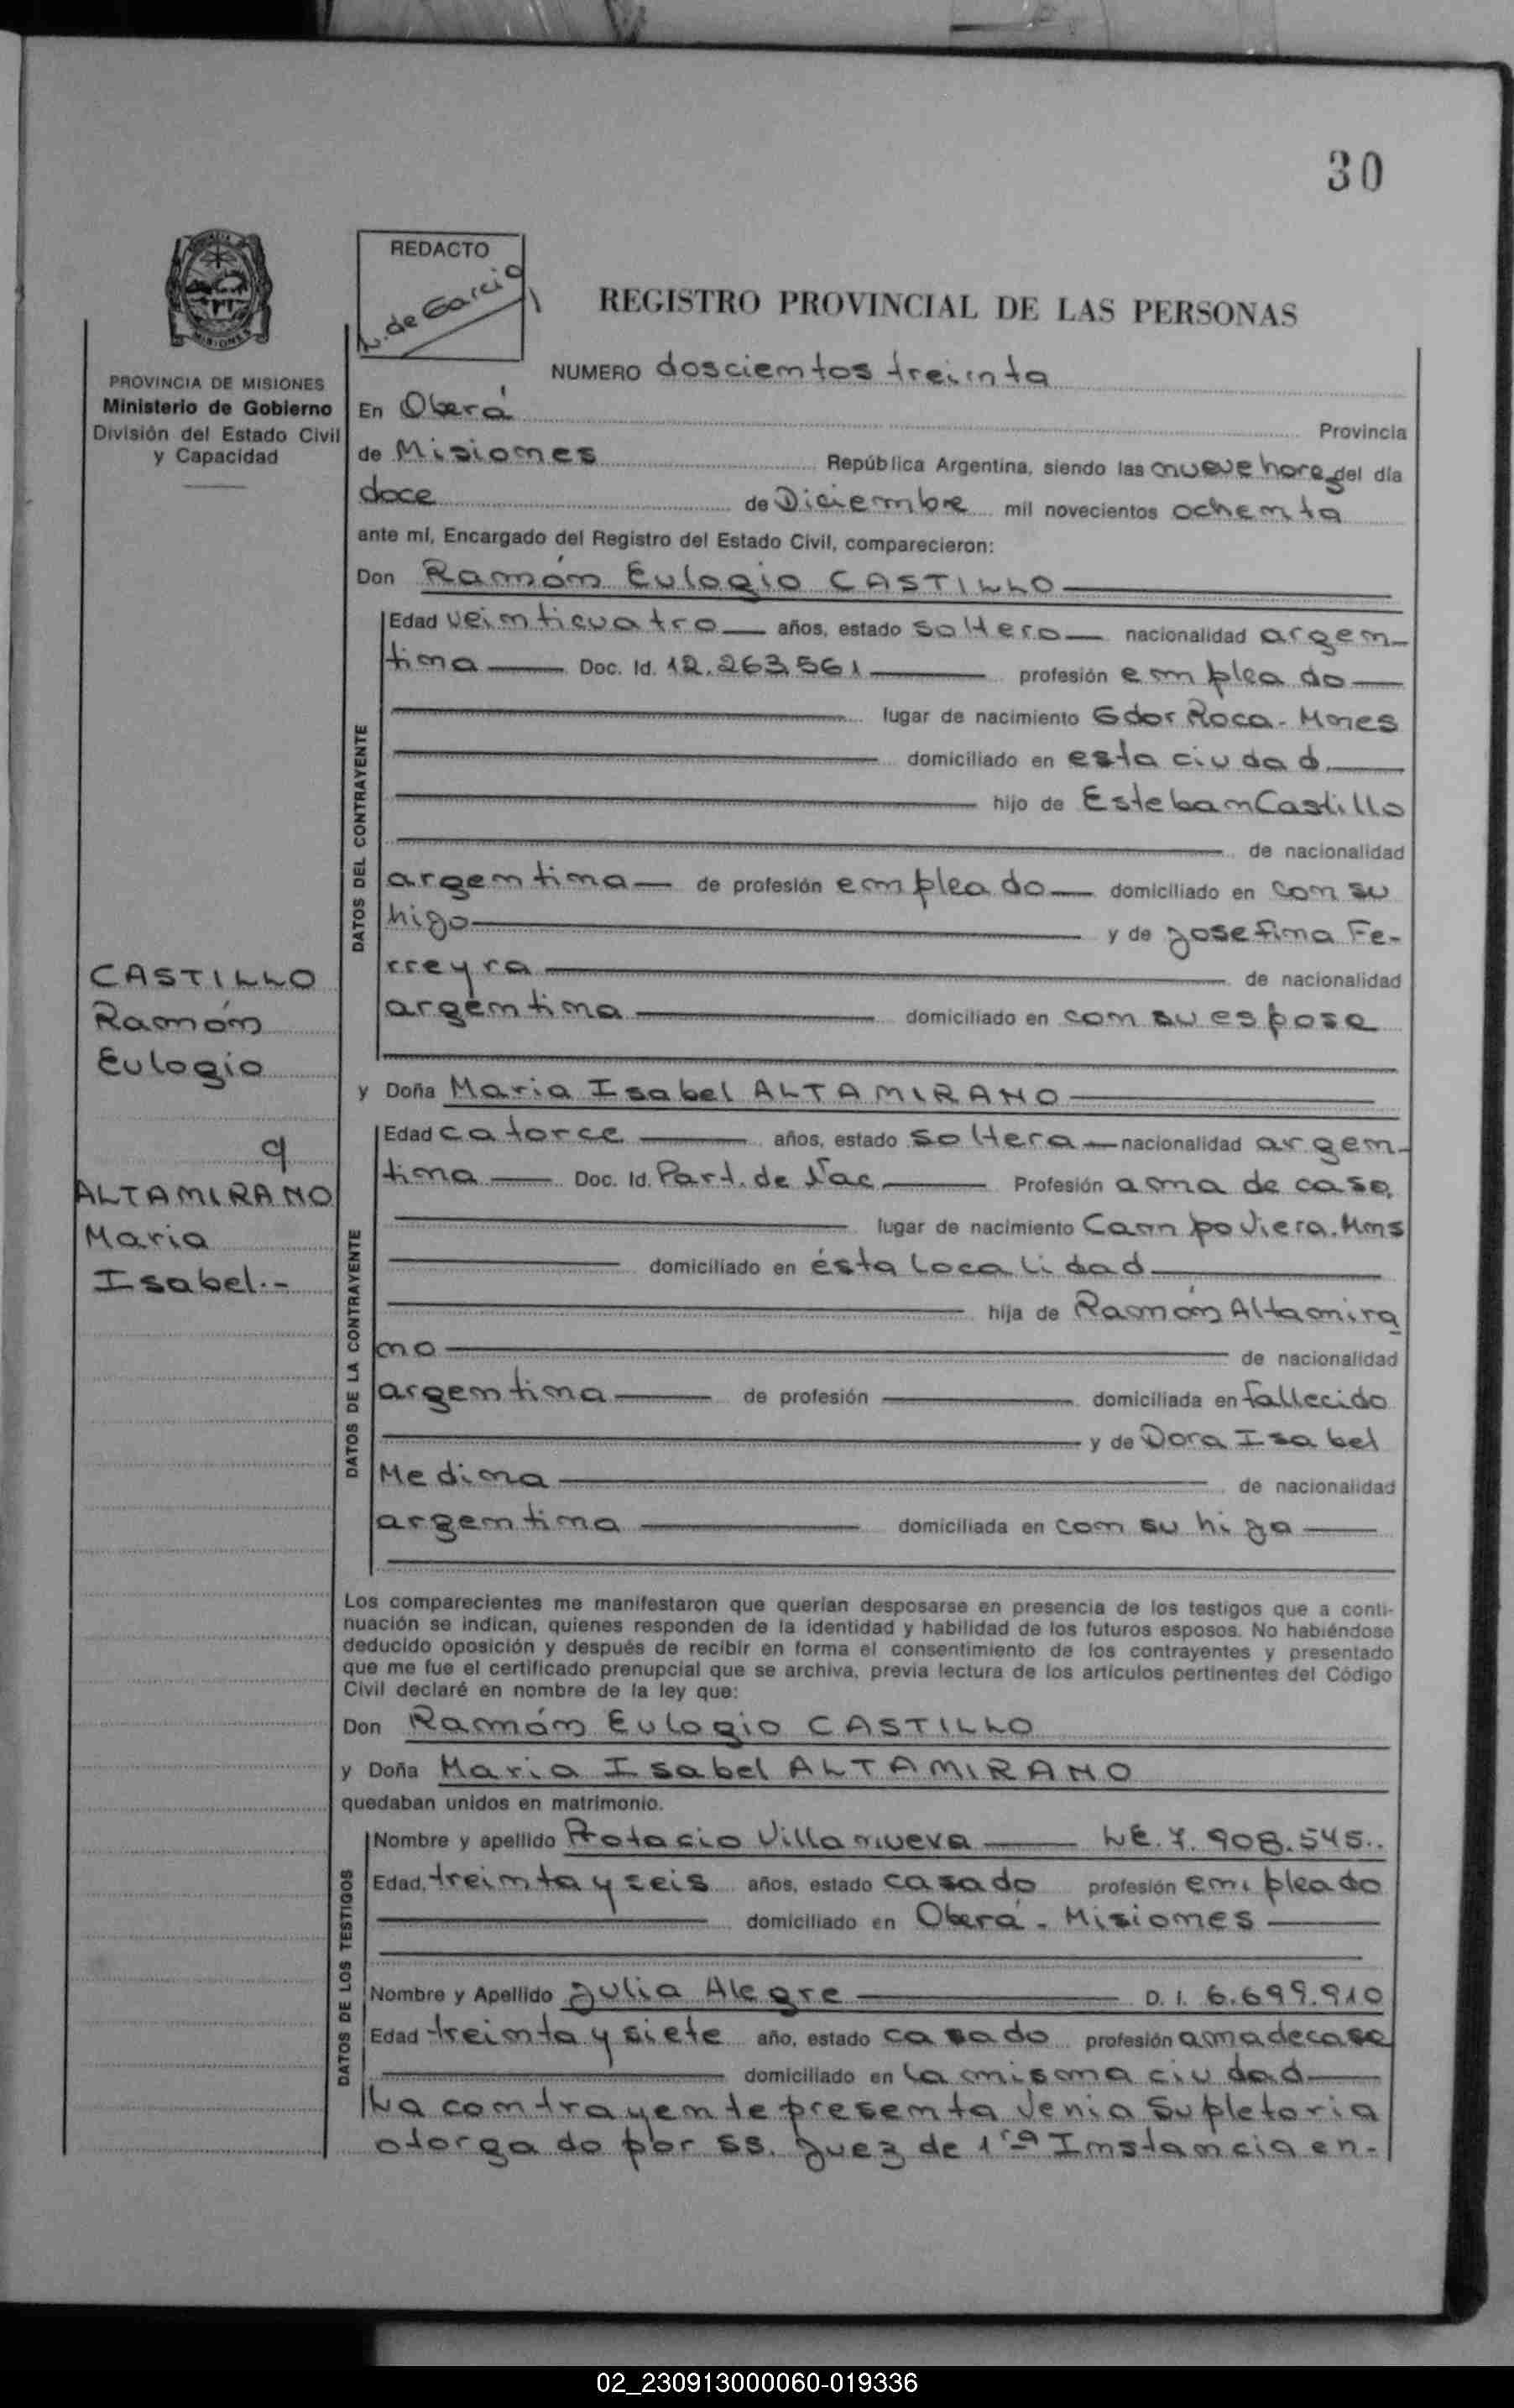 30
REDACTO
N. de Garcia
REGISTRO PROVINCIAL DE LAS PERSONAS
MISIONES
PROVINCIA DE MISIONES
Ministerio de Gobierno
División del Estado Civil
y Capacidad
NUMERO doscientos treinta
En Oberá Provincia
de Misiones República Argentina, siendo las nueve horas del día
doce de Diciembre mil novecientos ochenta
ante mí, Encargado del Registro del Estado Civil, comparecieron:
Don Ramón Eulogio CASTILLO
DATOS DEL CONTRAYENTE
Edad veinticuatro años, estado soltero nacionalidad argen-
tina Doc. Id. 12.263.561 profesión empleado
lugar de nacimiento Gdor Roca - Mnes
domiciliado en esta ciudad
hijo de Esteban Castillo
de nacionalidad
argentina de profesión empleado domiciliado en con su
hijo y de Josefina Fe-
rreyra de nacionalidad
argentina domiciliado en con su esposo
CASTILLO
Ramón
Eulogio
y
ALTAMIRANO
Maria
Isabel.-
y Doña Maria Isabel ALTAMIRANO
DATOS DE LA CONTRAYENTE
Edad catorce años, estado soltera nacionalidad argen-
tina Doc. Id. Part. de Nac Profesión ama de casa
lugar de nacimiento Campo Viera. Mns
domiciliado en ésta localidad
hija de Ramón Altamira
no de nacionalidad
argentina de profesión domiciliada en fallecido
y de Dora Isabel
Medina de nacionalidad
argentina domiciliada en con su hija
Los comparecientes me manifestaron que querían desposarse en presencia de los testigos que a conti-
nuación se indican, quienes responden de la identidad y habilidad de los futuros esposos. No habiéndose
deducido oposición y después de recibir en forma el consentimiento de los contrayentes y presentado
que me fue el certificado prenupcial que se archiva, previa lectura de los artículos pertinentes del Código
Civil declaré en nombre de la ley que:
Don Ramón Eulogio CASTILLO
y Doña Maria Isabel ALTAMIRANO
quedaban unidos en matrimonio.
DATOS DE LOS TESTIGOS
Nombre y apellido Protacio Villanueva LE. 7. 908. 545..
Edad, treinta y seis años, estado casado profesión empleado
domiciliado en Oberá - Misiones
Nombre y Apellido Julia Alegre D. I. 6.699.910
Edad treinta y siete año, estado casado profesión ama de casa
domiciliado en la misma ciudad
La contrayente presenta Venia Supletoria
otorgado por SS. Juez de 1ra Instancia en-
02_230913000060-019336